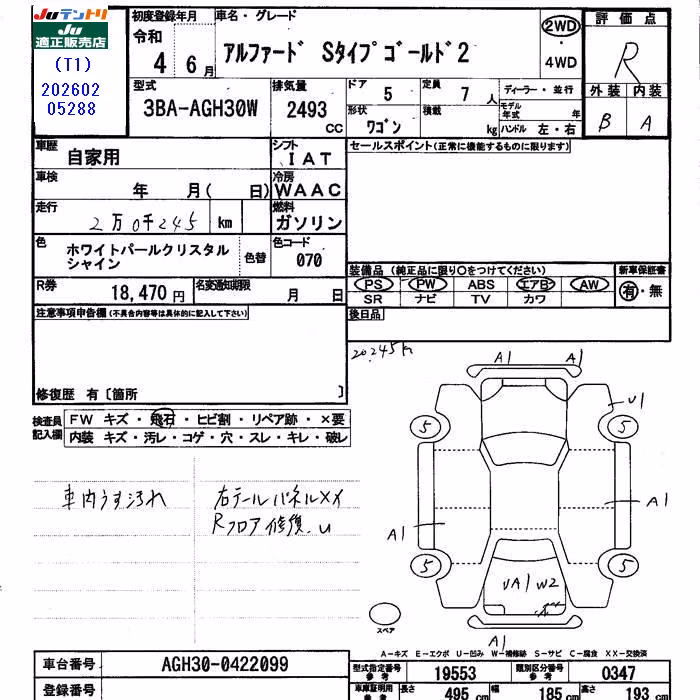 Juテントリ
Ju
適正販売店
(T1)
202602
05288
初度登録年月
令和
4 6月
車名・グレード
アルファード Sタイプゴールド2
2WD
・
4WD
評価点
R
外装 内装
B A
型式
3BA-AGH30W
排気量
2493
CC
ドア
5
定員
7人
形状
ワゴン
積載
kg
ディーラー・並行
モデル
年式 年
ハンドル 左・右
車歴
自家用
シフト
IAT
車検
年 月( 日)
冷房
WAAC
走行
2万0千245 km
燃料
ガソリン
色
ホワイトパールクリスタル
シャイン
色替
色コード
070
R券
18,470円
名変通知期限
月 日
セールスポイント(正常に機能するものに限ります)
装備品 (純正品に限り○をつけてください)
PS PW ABS エアB AW
SR ナビ TV カワ
新車保証書
有・無
後日品
注意事項申告欄(不具合内容等は具体的に記入して下さい)
修復歴 有〔箇所 〕
検査員
記入欄
FW キズ・飛石・ヒビ割・リペア跡・×要
内装 キズ・汚レ・コゲ・穴・スレ・キレ・破レ
車内うす汚れ
右テールパネルXX
Rフロア修復.U
20245k
A1 A1
U1
5 5
A1 A1
5 5
UA1 W2
A1
スペア
A-キズ E-エクボ U-凹み W-補修跡 S-サビ C-腐食 XX-交換済
車台番号
AGH30-0422099
登録番号
型式指定番号
参考
19553
類別区分番号
参考
0347
車庫証明用
参考
長さ
495 cm
幅
185 cm
高さ
193 cm